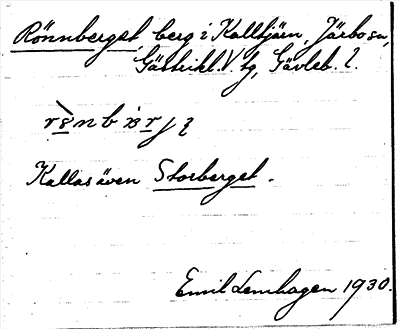 Rönnberget, berg i Kalltjärn, Järbo sn,
Gästrikl. V. tg, Gävleb. l.
Kallas även Storberget.
Emil Lemhagen 1930.